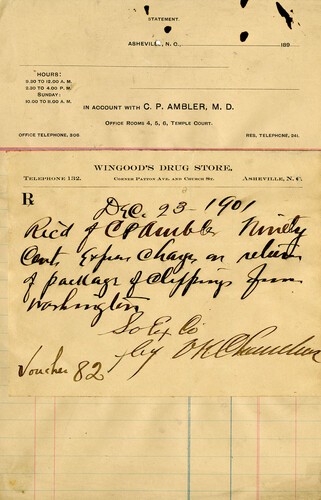 STATEMENT.
ASHEVILLE, N. C., 189
HOURS:
9.30 TO 12.00 A. M.
2.30 TO 4.00 P. M.
SUNDAY:
10.00 TO 11.00 A. M.
IN ACCOUNT WITH C. P. AMBLER, M. D.
OFFICE ROOMS 4, 5, 6, TEMPLE COURT.
OFFICE TELEPHONE, 306 RES. TELEPHONE, 241.
WINGOOD'S DRUG STORE,
TELEPHONE 132. CORNER PATTON AVE. AND CHURCH ST. ASHEVILLE, N. C.
℞
Dec. 23 - 1901
Rec'd of C P Ambler Ninety
Cents Express Charges on return
of package of Clippings from
Washington
So Ex Co
by
Voucher 82